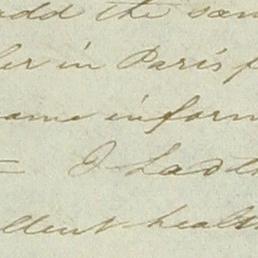 add the sam
er in Paris f
ame inform
- I had th
llent health